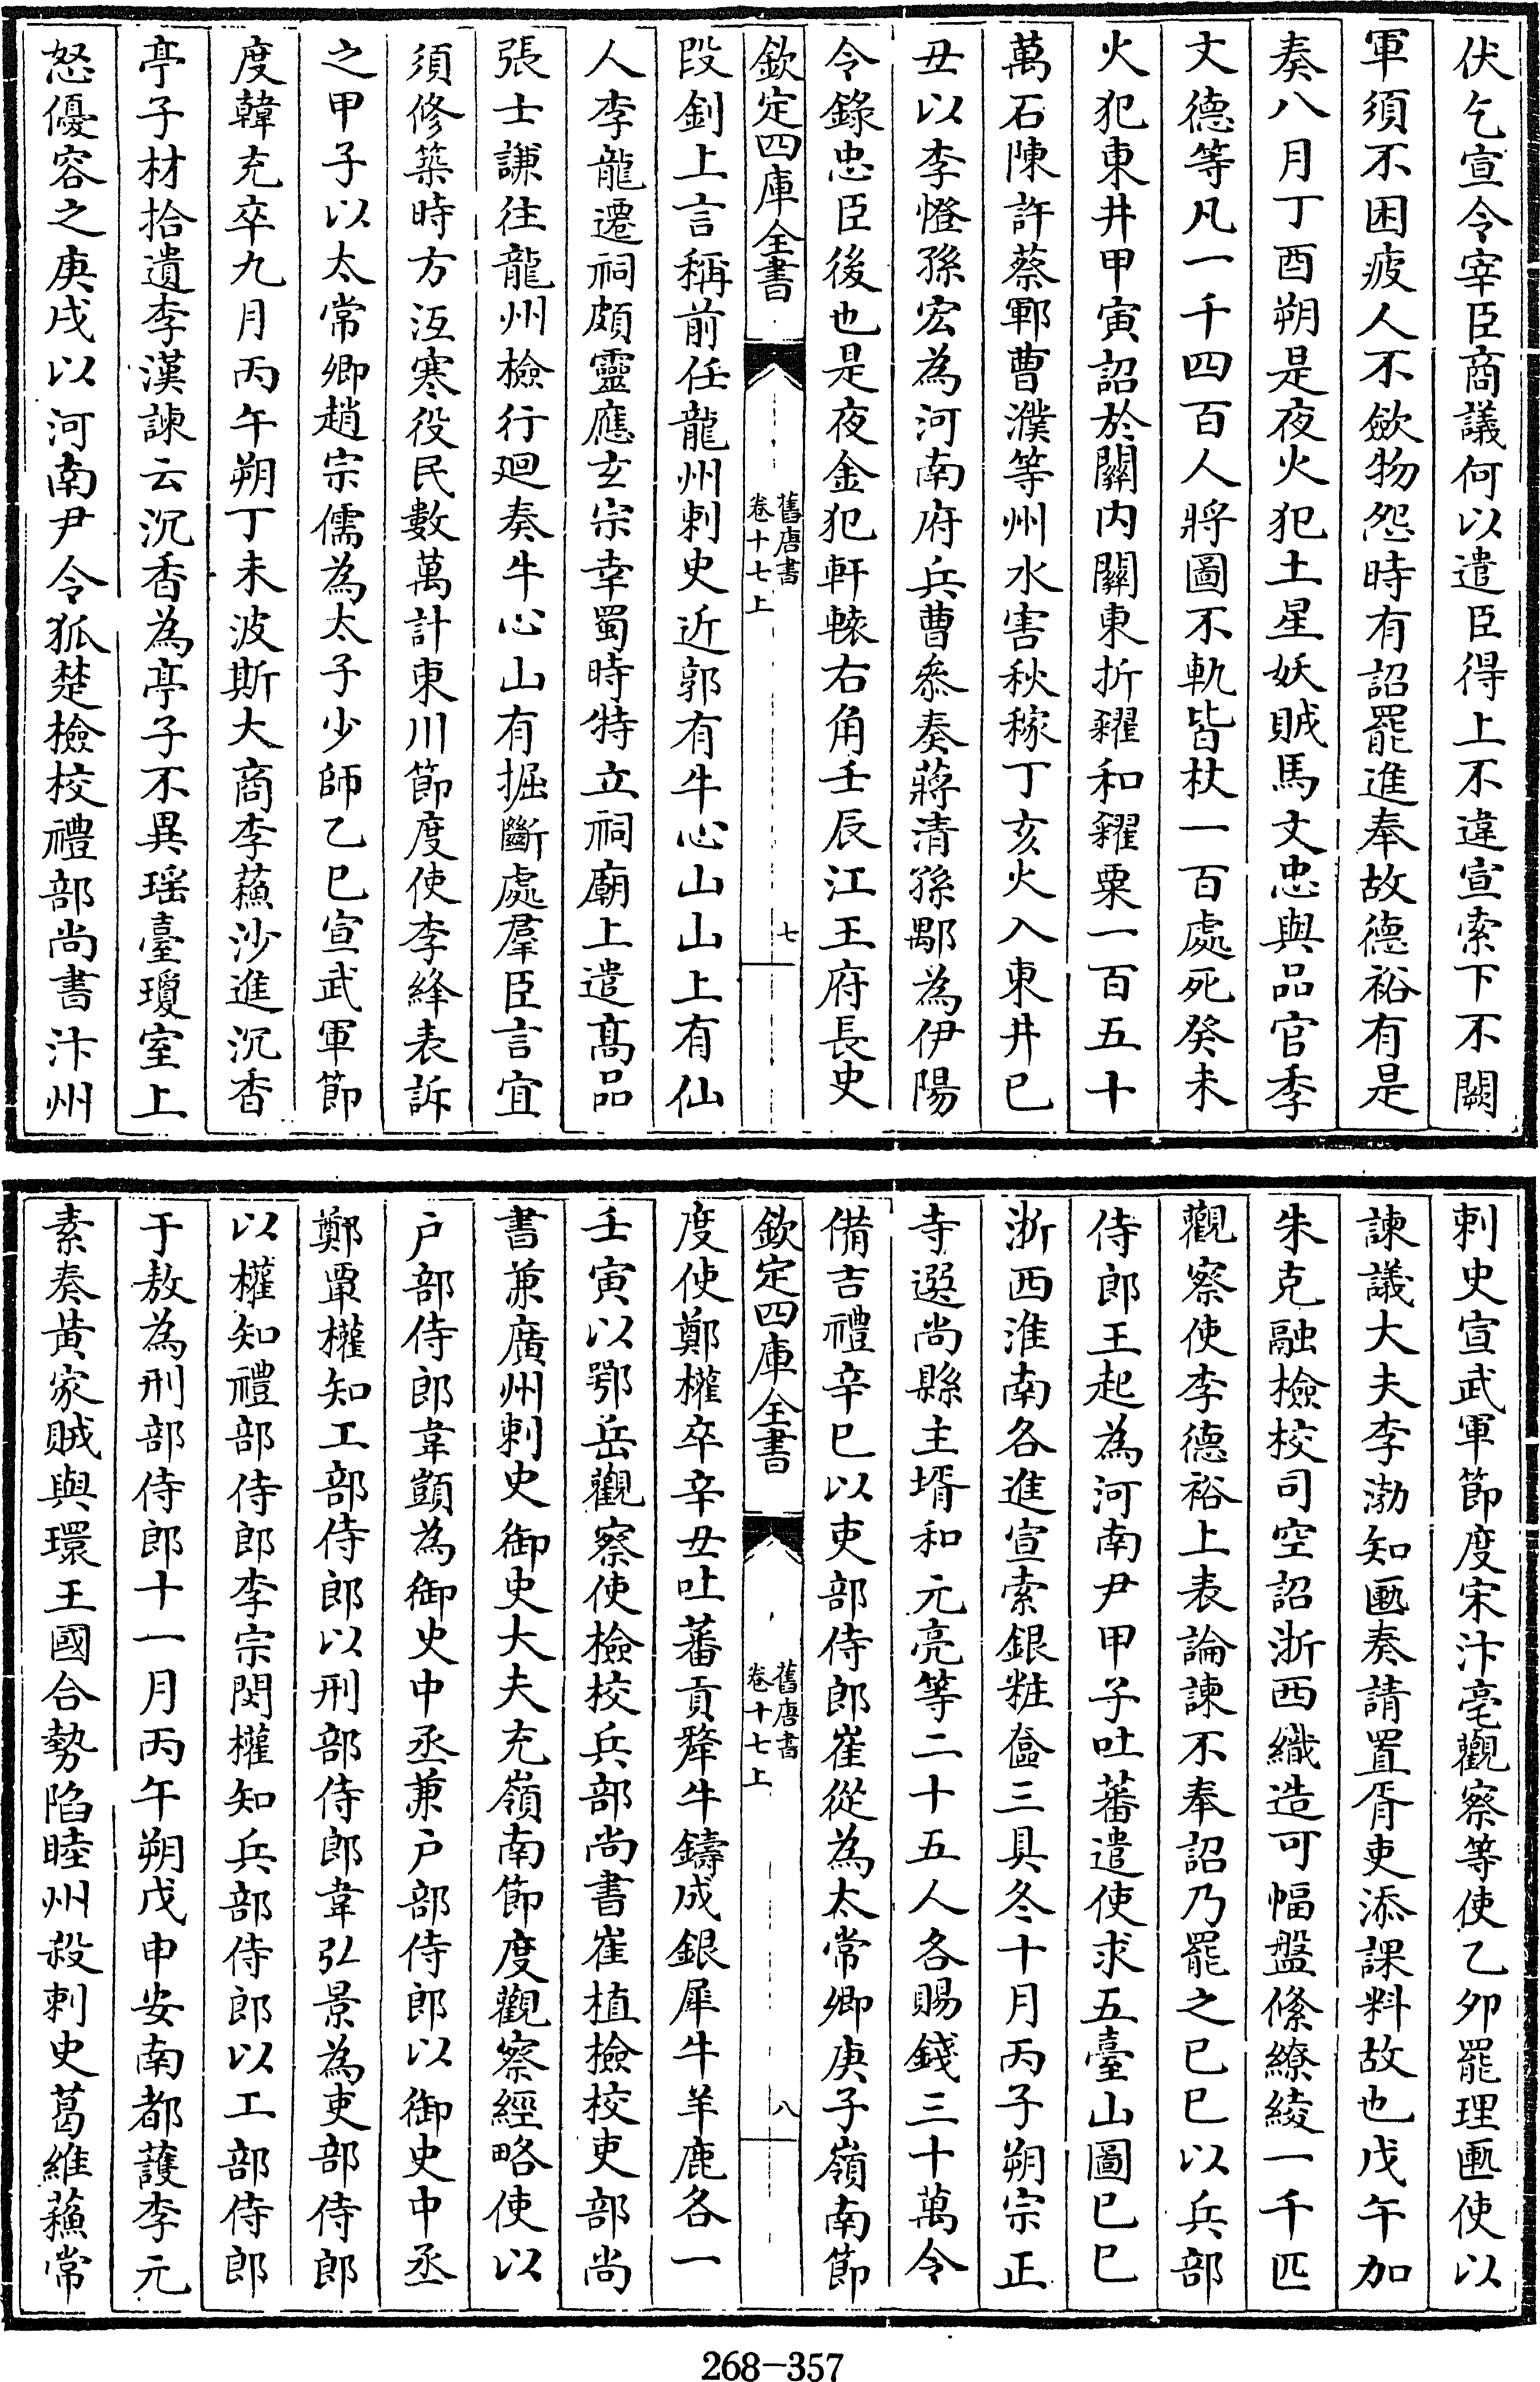 伏乞宣令宰臣商議何以遣臣得上不違宣索下不闕
軍須不困疲人不斂物怨時有詔罷進奉故德裕有是
奏八月丁酉朔是夜火犯土星妖賊馬文忠與品官季
文德等凡一千四百人將圖不軌皆杖一百處死癸未
火犯東井甲寅詔於關内關東折糴和糴粟一百五十
萬石陳許蔡鄆曹濮等州水害秋稼丁亥火入東井已
丑以李憕孫宏為河南府兵曹叅奏蔣清孫鄅為伊陽
令錄忠臣後也是夜金犯軒轅右角壬辰江王府長史
欽定四庫全書
舊唐書
卷十七上
七
段釗上言稱前任龍州刺史近郭有牛心山山上有仙
人李龍遷祠頗靈應玄宗幸蜀時特立祠廟上遣髙品
張士謙往龍州檢行廻奏牛心山有掘斷處羣臣言宜
須修築時方沍寒役民數萬計東川節度使李絳表訴
之甲子以太常卿趙宗儒為太子少師乙巳宣武軍節
度韓充卒九月丙午朔丁未波斯大商李蘓沙進沉香
亭子材拾遺李漢諫云沉香為亭子不異瑶臺瓊室上
怒優容之庚戌以河南尹令狐楚檢校禮部尚書汴州
刺史宣武軍節度宋汴亳觀察等使乙夘罷理匭使以
諫議大夫李渤知匭奏請置胥吏添課料故也戊午加
朱克融檢校司空詔浙西織造可幅盤絛繚綾一千匹
觀察使李德裕上表論諫不奉詔乃罷之已巳以兵部
侍郎王起為河南尹甲子吐蕃遣使求五臺山圖已巳
浙西淮南各進宣索銀粧奩三具冬十月丙子朔宗正
寺選尚縣主壻和元亮等二十五人各賜錢三十萬令
備吉禮辛巳以吏部侍郎崔從為太常卿庚子嶺南節
欽定四庫全書
舊唐書
卷十七上
八
度使鄭權卒辛丑吐蕃貢犛牛鑄成銀犀牛羊鹿各一
壬寅以鄂岳觀察使檢校兵部尚書崔植檢校吏部尚
書兼廣州刺史御史大夫充嶺南節度觀察經略使以
户部侍郎韋顗為御史中丞兼户部侍郎以御史中丞
鄭覃權知工部侍郎以刑部侍郎韋弘景為吏部侍郎
以權知禮部侍郎李宗閔權知兵部侍郎以工部侍郎
于敖為刑部侍郎十一月丙午朔戊申安南都護李元
素奏黄家賊與環王國合勢陷睦州殺刺史葛維蘓常
268-357